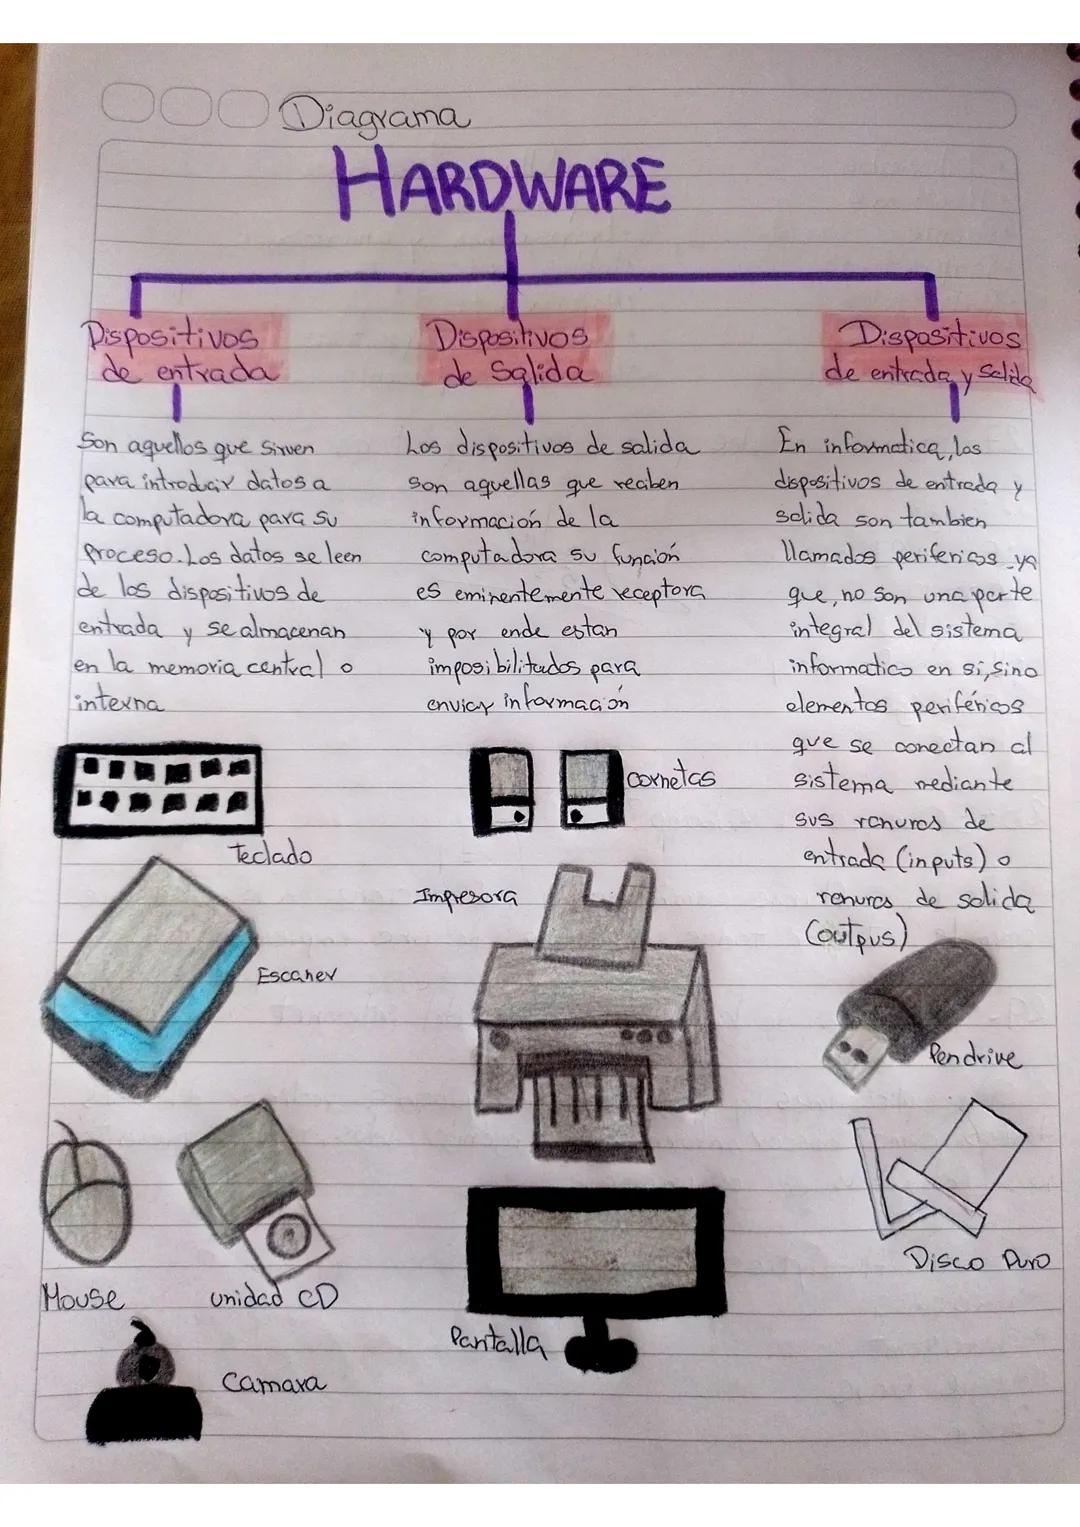 Diagrama
HARDWARE
Dispositivos
de entrada
Son aquellos que sirven
para introducir datos a
la computadora para su
proceso. Los datos se leen
de los dispositivos de
entrada y se almacenan
en la memoria central o
interna
Teclado
Escaner
Mouse
unidad CD
Camara
Dispositivos
de Salida
Los dispositivos de salida
son aquellas que reciben
información de la
computadora su función
es eminentemente receptora
y por ende estan
imposibilitados para
enviar información
cornetas
Impresora
Pantalla
Dispositivos
de entrada y Salida
En informatica, los
dispositivos de entrada y
salida son tambien
llamados perifericos ya
que, no son una parte
integral del sistema
informatico en si, sino
elementos periféricos
que se conectan al
sistema mediante
sus ranuras de
entrada (inputs) o
ranuras de salida
(outpus)
Pendrive
Disco Duro